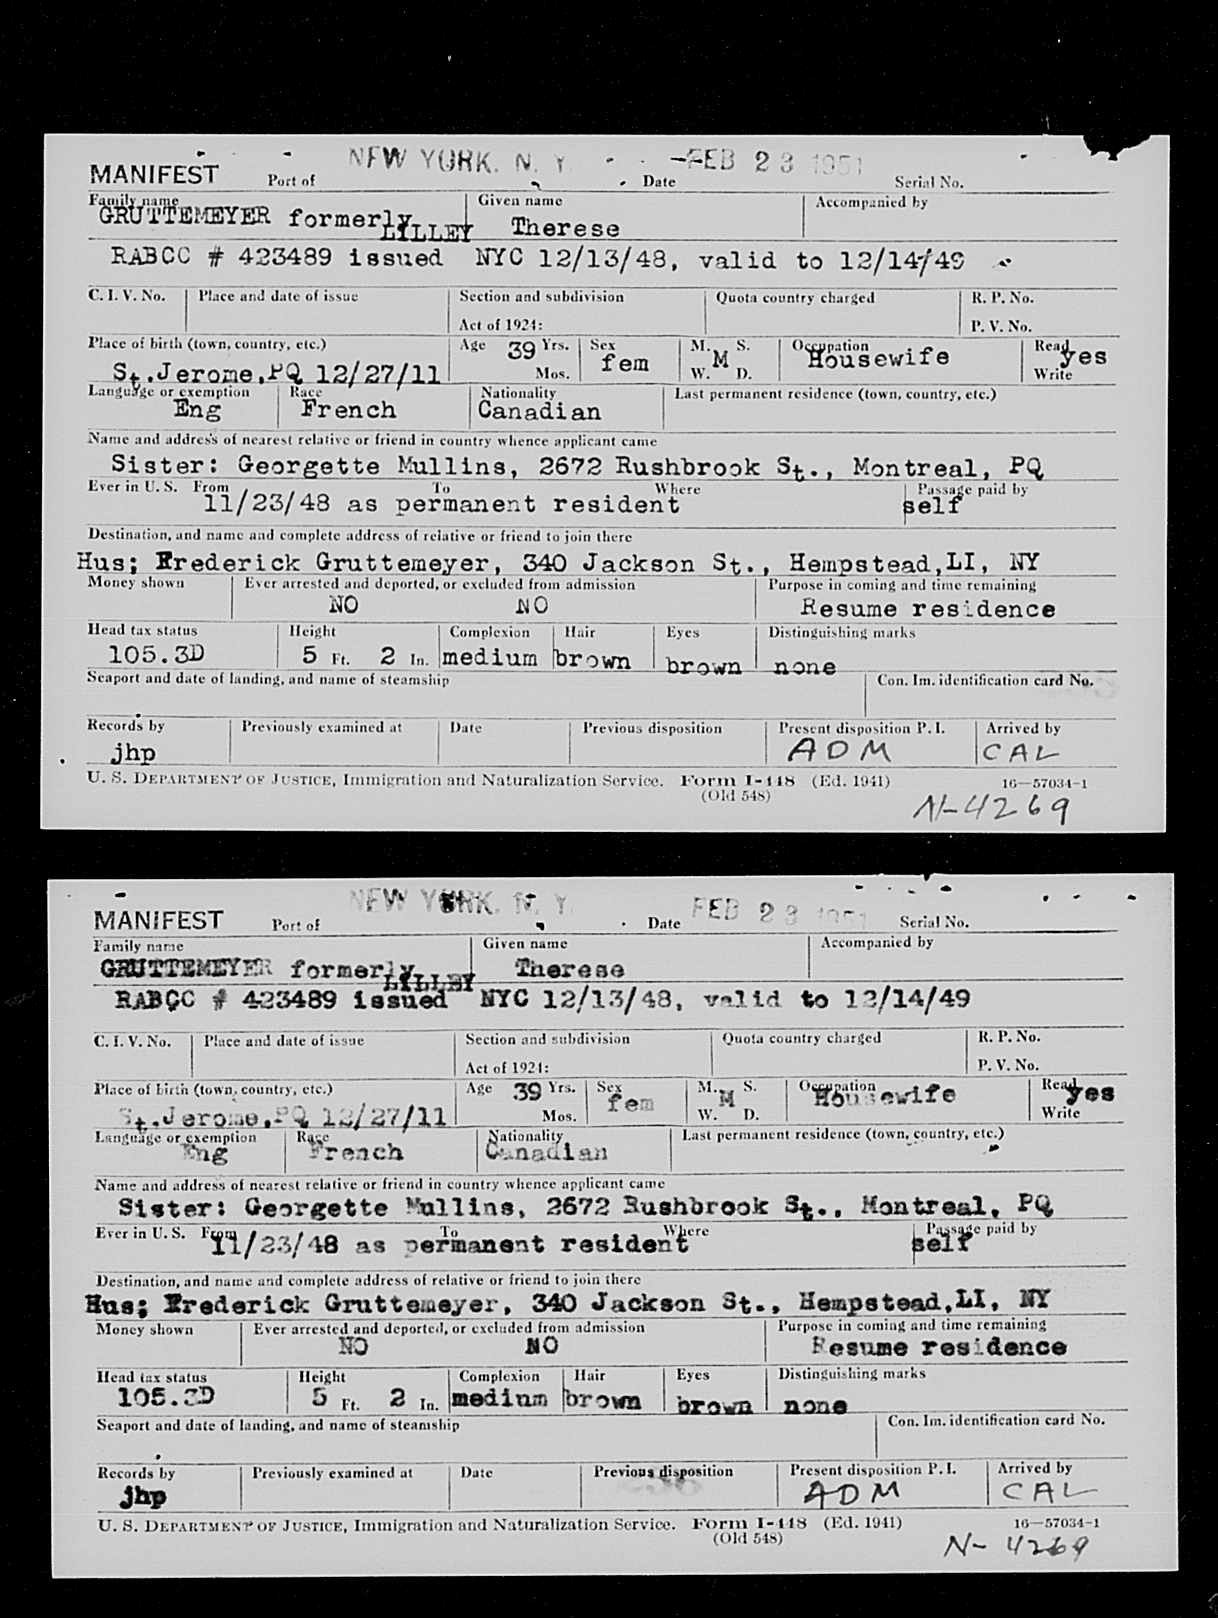 MANIFEST Port of NEW YORK, N. Y. Date FEB 23 1951 Serial No.
Family name Given name Accompanied by
GRUTTEMEYER formerly LILLEY Therese
RABCC # 423489 issued NYC 12/13/48, valid to 12/14/49
C. I. V. No. Place and date of issue Section and subdivision Quota country charged R. P. No.
Act of 1924: P. V. No.
Place of birth (town, country, etc.) Age 39 Yrs. Sex M. S. Occupation Read
St.Jerome,PQ 12/27/11 Mos. fem M W. D. Housewife yes Write
Language or exemption Race Nationality Last permanent residence (town, country, etc.)
Eng French Canadian
Name and address of nearest relative or friend in country whence applicant came
Sister: Georgette Mullins, 2672 Rushbrook St., Montreal, PQ
Ever in U. S. From To Where Passage paid by
11/23/48 as permanent resident self
Destination, and name and complete address of relative or friend to join there
Hus; Frederick Gruttemeyer, 340 Jackson St., Hempstead,LI, NY
Money shown Ever arrested and deported, or excluded from admission Purpose in coming and time remaining
NO NO Resume residence
Head tax status Height Complexion Hair Eyes Distinguishing marks
105.3D 5 Ft. 2 In. medium brown brown none
Seaport and date of landing, and name of steamship Con. Im. identification card No.
Records by Previously examined at Date Previous disposition Present disposition P. I. Arrived by
jhp ADM CAL
U. S. DEPARTMENT OF JUSTICE, Immigration and Naturalization Service. Form I-448 (Ed. 1941) 16—57034-1
(Old 548)
N-4269
MANIFEST Port of NEW YORK, N. Y. Date FEB 23 1951 Serial No.
Family name Given name Accompanied by
GRUTTEMEYER formerly LILLEY Therese
RABCC # 423489 issued NYC 12/13/48, valid to 12/14/49
C. I. V. No. Place and date of issue Section and subdivision Quota country charged R. P. No.
Act of 1924: P. V. No.
Place of birth (town, country, etc.) Age 39 Yrs. Sex M. S. Occupation Read
St.Jerome,PQ 12/27/11 Mos. fem M W. D. Housewife yes Write
Language or exemption Race Nationality Last permanent residence (town, country, etc.)
Eng French Canadian
Name and address of nearest relative or friend in country whence applicant came
Sister: Georgette Mullins, 2672 Rushbrook St., Montreal, PQ
Ever in U. S. From To Where Passage paid by
11/23/48 as permanent resident self
Destination, and name and complete address of relative or friend to join there
Hus; Frederick Gruttemeyer, 340 Jackson St., Hempstead,LI, NY
Money shown Ever arrested and deported, or excluded from admission Purpose in coming and time remaining
NO NO Resume residence
Head tax status Height Complexion Hair Eyes Distinguishing marks
105.3D 5 Ft. 2 In. medium brown brown none
Seaport and date of landing, and name of steamship Con. Im. identification card No.
Records by Previously examined at Date Previous disposition Present disposition P. I. Arrived by
jhp ADM CAL
U. S. DEPARTMENT OF JUSTICE, Immigration and Naturalization Service. Form I-448 (Ed. 1941) 16—57034-1
(Old 548)
N-4269